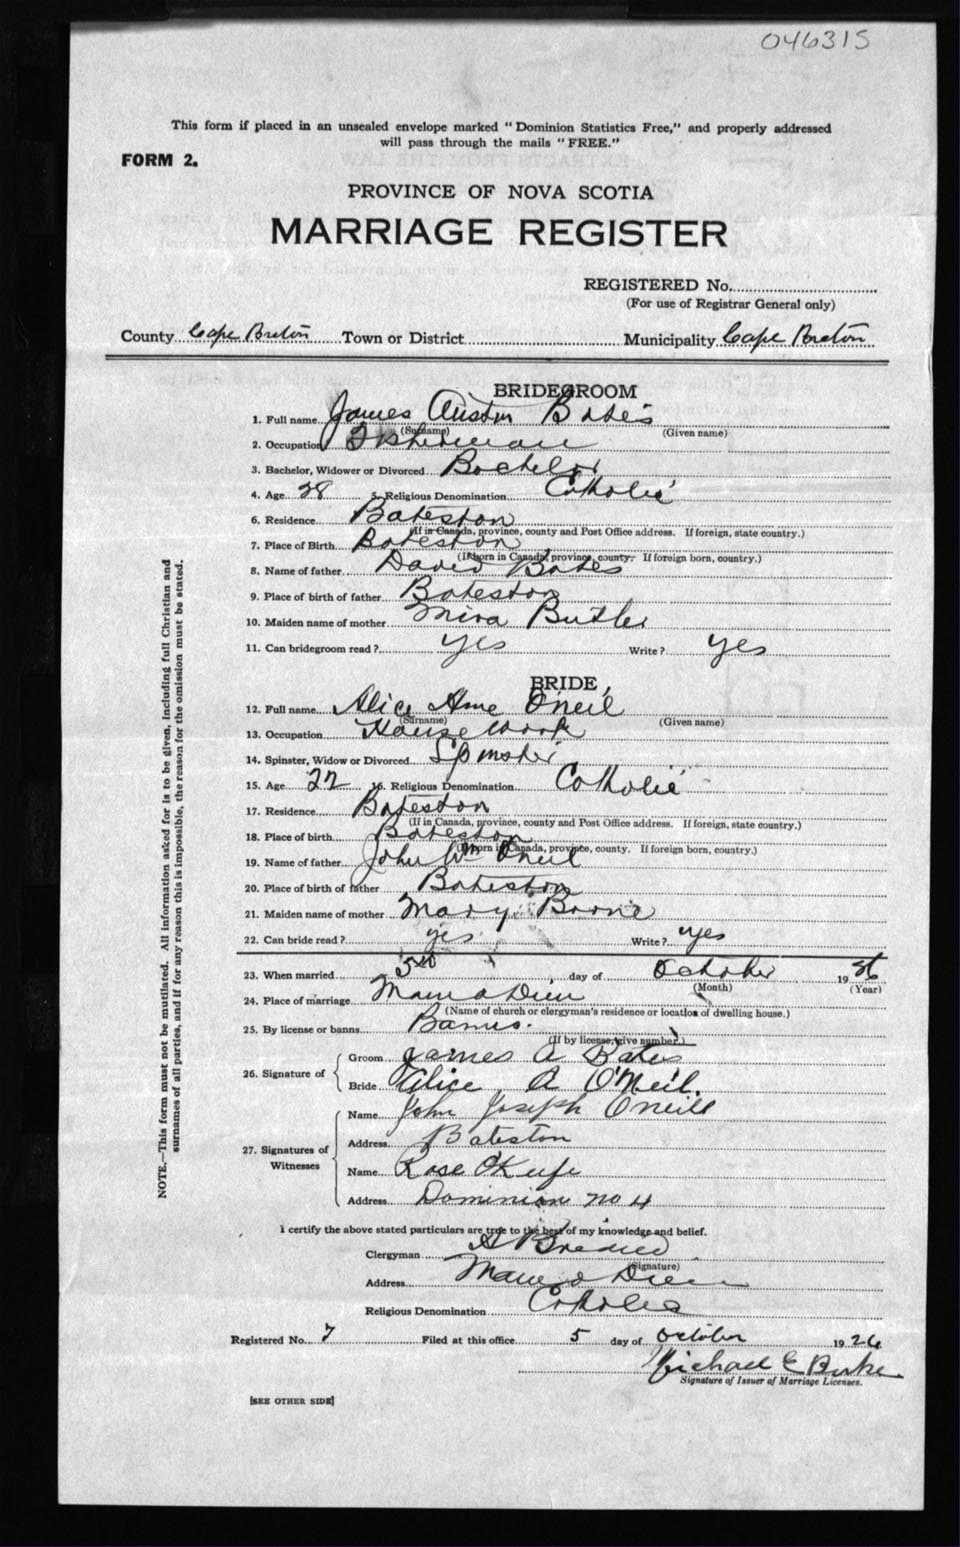 046315
This form if placed in an unsealed envelope marked "Dominion Statistics Free," and properly addressed
will pass through the mails "FREE."
FORM 2.
PROVINCE OF NOVA SCOTIA
MARRIAGE REGISTER
REGISTERED No.
(For use of Registrar General only)
County Cape Breton Town or District Municipality Cape Breton
BRIDEGROOM
1. Full name James Austin Bates
(Surname) (Given name)
2. Occupation Fisherman
3. Bachelor, Widower or Divorced Bachelor
4. Age 28 5. Religious Denomination Catholic
6. Residence Bateston
(If in Canada, province, county and Post Office address. If foreign, state country.)
7. Place of Birth Bateston
(If born in Canada, province, county. If foreign born, country.)
8. Name of father David Bates
9. Place of birth of father Bateston
10. Maiden name of mother Mira Butler
11. Can bridegroom read? yes Write? yes
BRIDE
12. Full name Alice Ame O'neil
(Surname) (Given name)
13. Occupation House work
14. Spinster, Widow or Divorced Spinster
15. Age 22 16. Religious Denomination Catholic
17. Residence Bateston
(If in Canada, province, county and Post Office address. If foreign, state country.)
18. Place of birth Bateston
(If born in Canada, province, county. If foreign born, country.)
19. Name of father John Wm O'neil
20. Place of birth of father Bateston
21. Maiden name of mother Mary Boone
22. Can bride read? yes Write? yes
23. When married day of October 1926
(Month) (Year)
24. Place of marriage Main a Dieu
(Name of church or clergyman's residence or location of dwelling house.)
25. By license or banns Banns.
(If by license, give number.)
26. Signature of
Groom James A Bates
Bride Alice A O'Neil.
27. Signatures of Witnesses
Name John Joseph Oneill
Address Bateston
Name Rose O'Keefe
Address Dominion no 4
I certify the above stated particulars are true to the best of my knowledge and belief.
Clergyman
(Signature)
Address Main a Dieu
Religious Denomination Catholic
Registered No. 7 Filed at this office 5 day of October 1926
Michael E Burke
Signature of Issuer of Marriage Licenses.
[SEE OTHER SIDE]
NOTE.—This form must not be mutilated. All information asked for is to be given, including full Christian and
surnames of all parties, and if for any reason this is impossible, the reason for the omission must be stated.